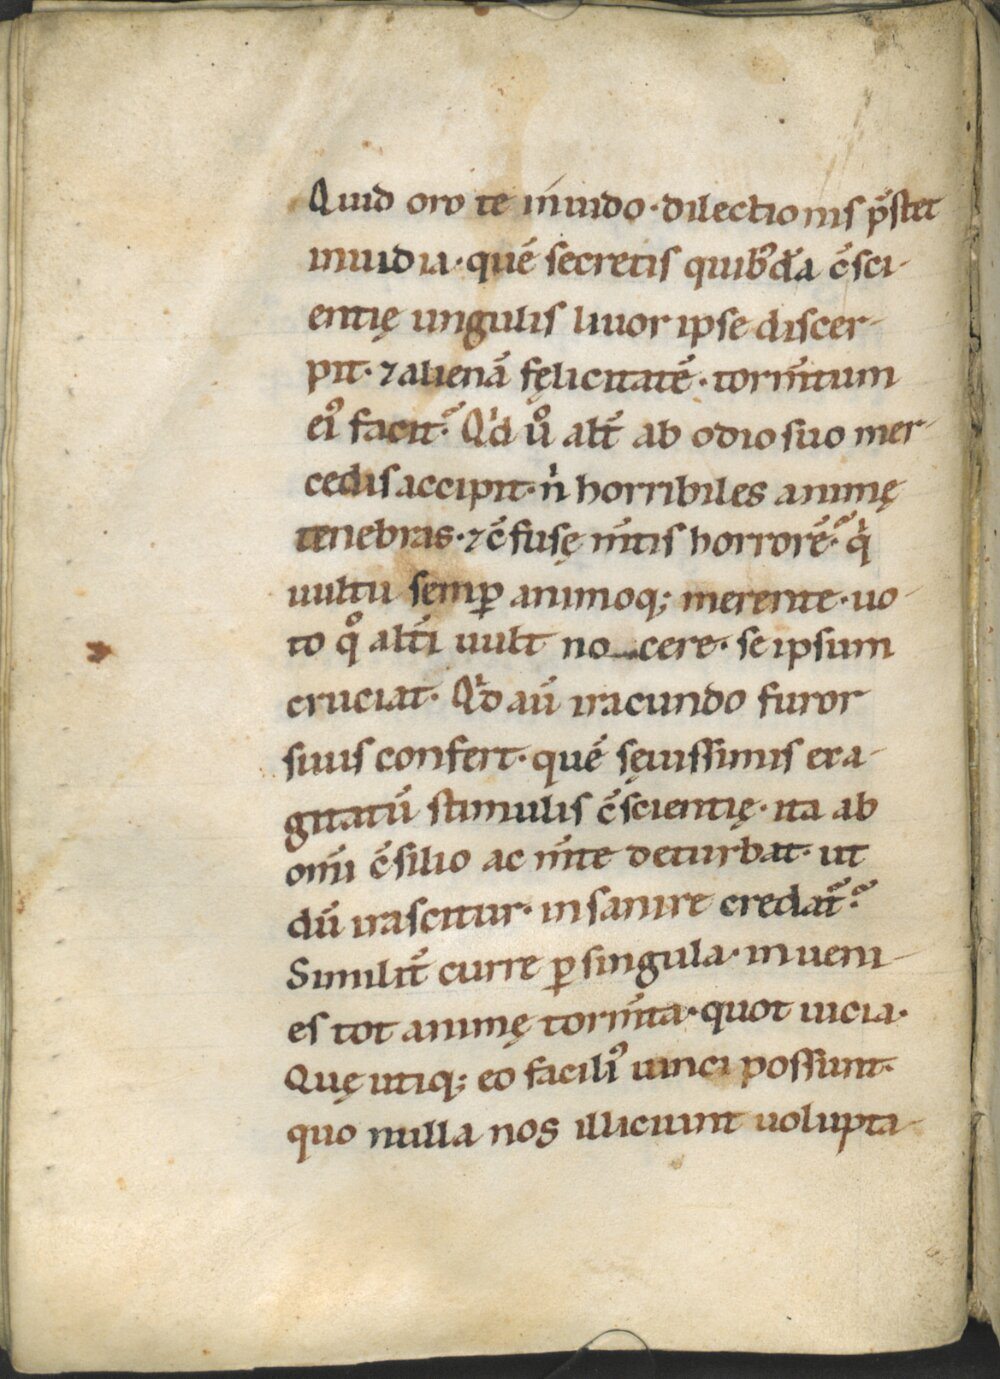 Quid oro te inuido·dilectionis p̃stet
inuidia·quẽ secretis quibꝰdã c̃sci-
entię ungulis liuor ipse discer-
pit·⁊alienã fęlicitatẽ·torm̃tum
eiꝰ facit? Qͥd uͦ alt̃ ab odio suo mer-
cedis accipit·nͥ horribiles animę
tenebras·⁊c̃fusę m̃tis horrorẽ? qͥ
uultu semꝑ animoq; merente·uo-
to qͦ alt̃i uult no_cere·se ipsum
cruciat· Qͥd aũ iracundo furor
suus confert·quẽ sęuissimis exa-
gitatũ stimulis c̃scientię·ita ab
om̃i c̃silio ac m̃te deturbat·ut
dũ irascitur·insanire credat̃?
Similit̃ curre ꝑ singula·inueni-
es tot animę torm̃ta·quot uicia·
Quę utiq; eo faciliꝰ uinci possunt·
quo nulla nos illiciunt uolupta-